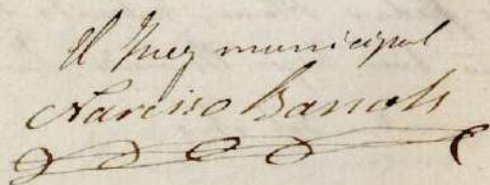 El Juez municipal
Narciso Barnols